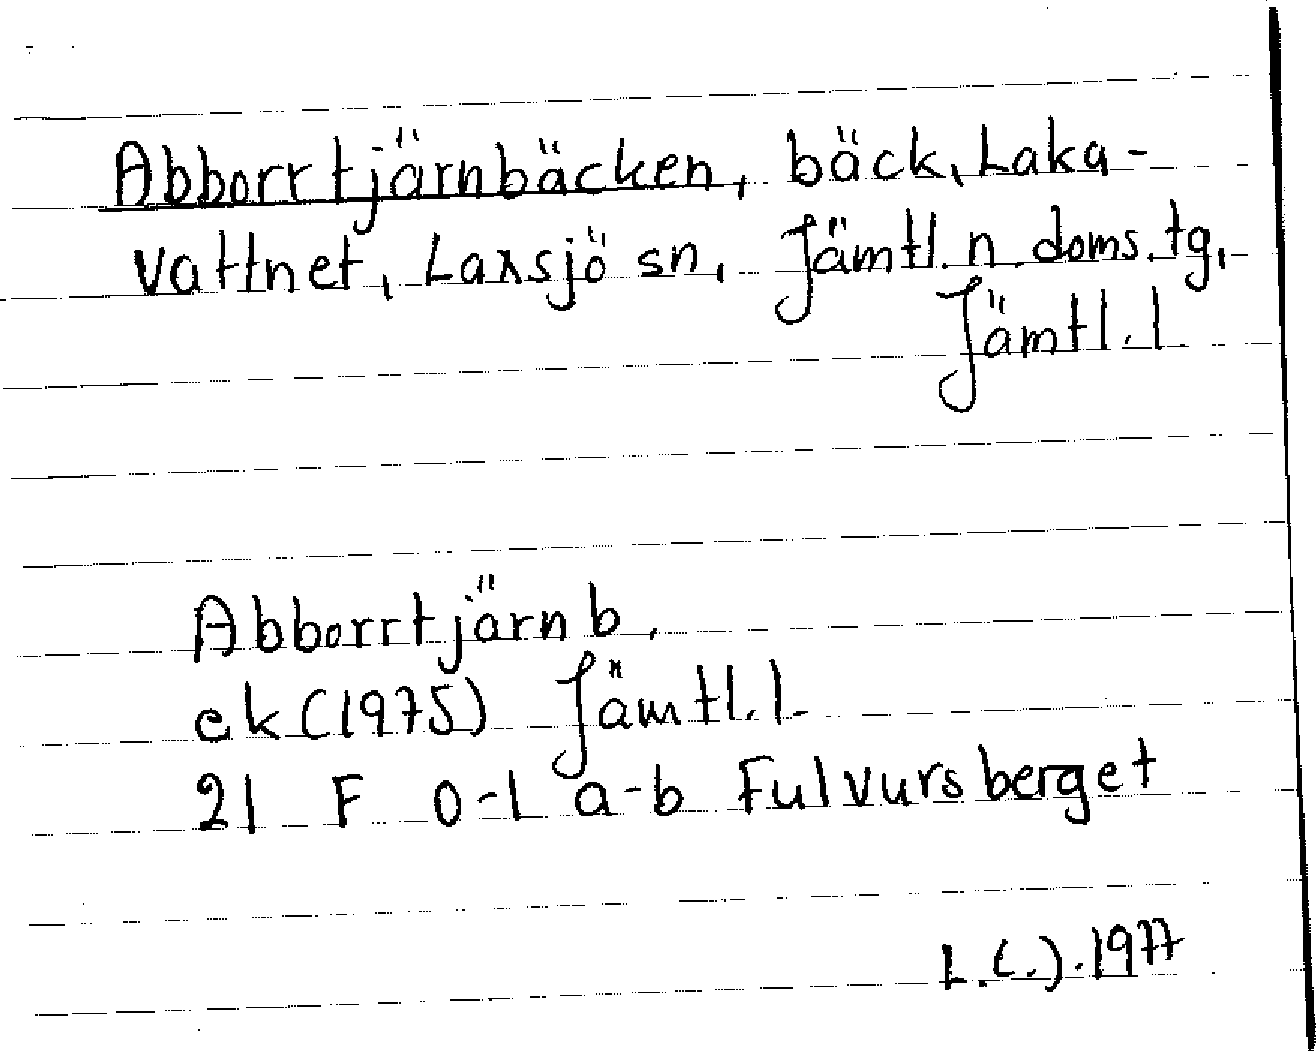 Abborrtjärnbäcken, bäck, Laka-
vattnet, Laxsjö sn, Jämtl. n. doms. tg,
Jämtl. l
Abborrtjärnb.
ek (1975) Jämtl. l.
21 F 0-1 a-b Fulvursberget
1977